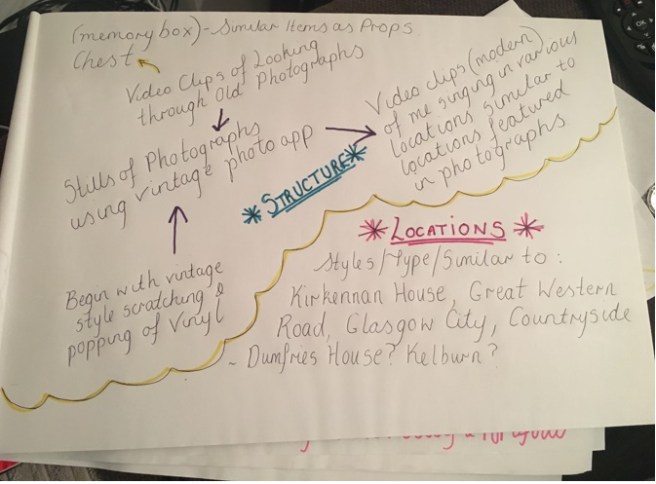 (memory box) - Similar Items as Props
Chest
Video Clips of Looking
through Old Photographs
Stills of Photographs
using vintage photo app
Video clips (modern)
of me singing in various
locations similar to
locations featured
in photographs
*STRUCTURE*
Begin with vintage
style scratching &
popping of Vinyl
* LOCATIONS *
Styles/Type/Similar to:
Kirkennan House, Great Western
Road, Glasgow City, Countryside
- Dumfries House? Kelburn?